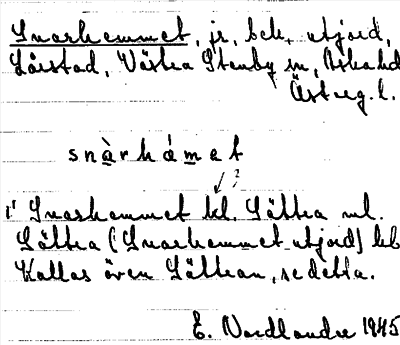 Snarhemmet, jr, bek, utjord,
Lårstad, Västra Stenby sn, Askahd
Östergl.
snàrhámet
?
i Snarhemmet bl. Sättra ml.
Sättra (Snarhemmet utjord) bb
Kallas även Sättran, se detta.
E. Nordlander 1945